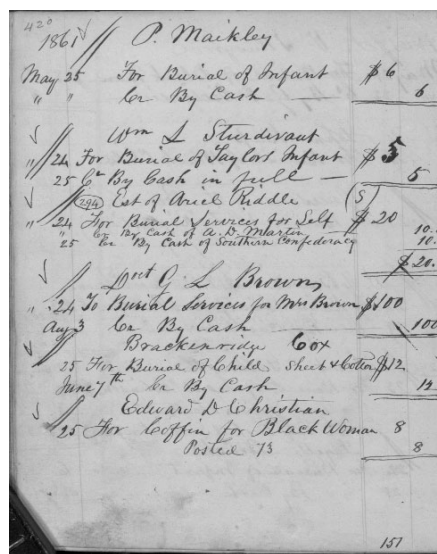 420
1861 P. Maikley
May 25 For Burial of Infant $6
" " Cr By Cash 6
Wm L Sturdivant
" 24 For Burial of Taylors Infant $5
25 Cr By Cash in full — 5
(294) Est of Ariel Riddle (S)
" 24 For Burial Services for Self $20
" Cr By Cash of A. D. Martin 10.
25 Cr By Cash of Southern Confederacy 10.
$20.
Doct G. L. Brown
" 24 To Burial Services for Mrs Brown $100
Aug 3 Cr By Cash 100
Brackenridge Cox
25 For Burial of Child Sheet & Cotton $12
June 7th Cr By Cash 12
Edward D Christian
25 For Coffin for Black Woman 8
Posted 73 8
151